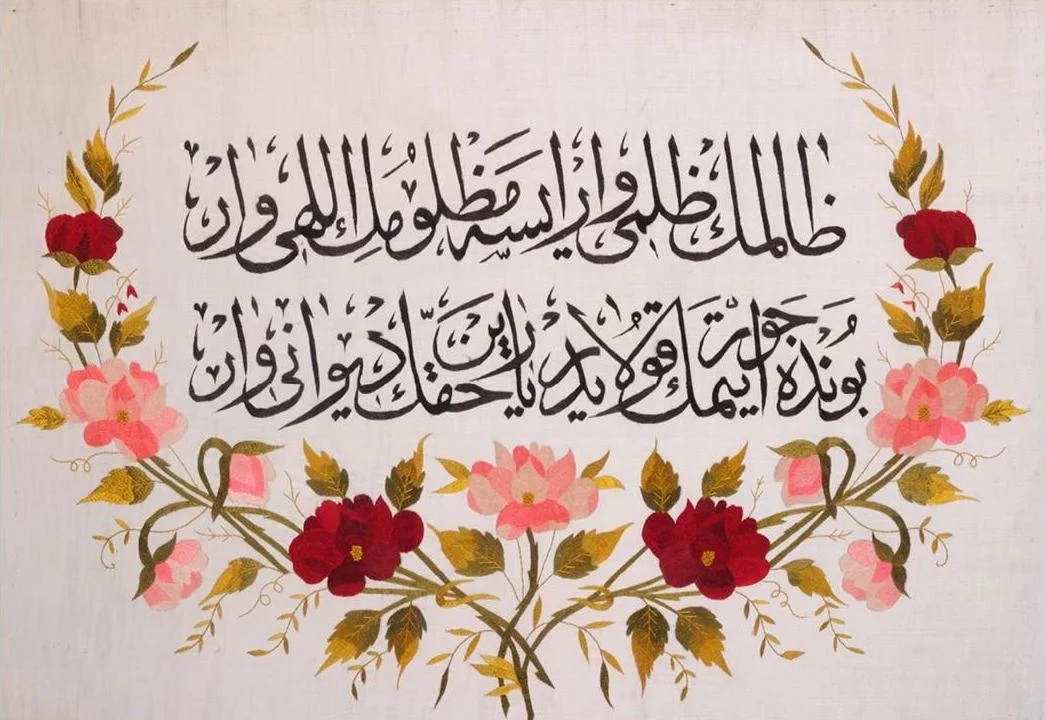 ظالمك ظلمى وار ايسه مظلومك اللهى وار
بونده جور ايتمك قولايدر يارين حقك ديوانى وار